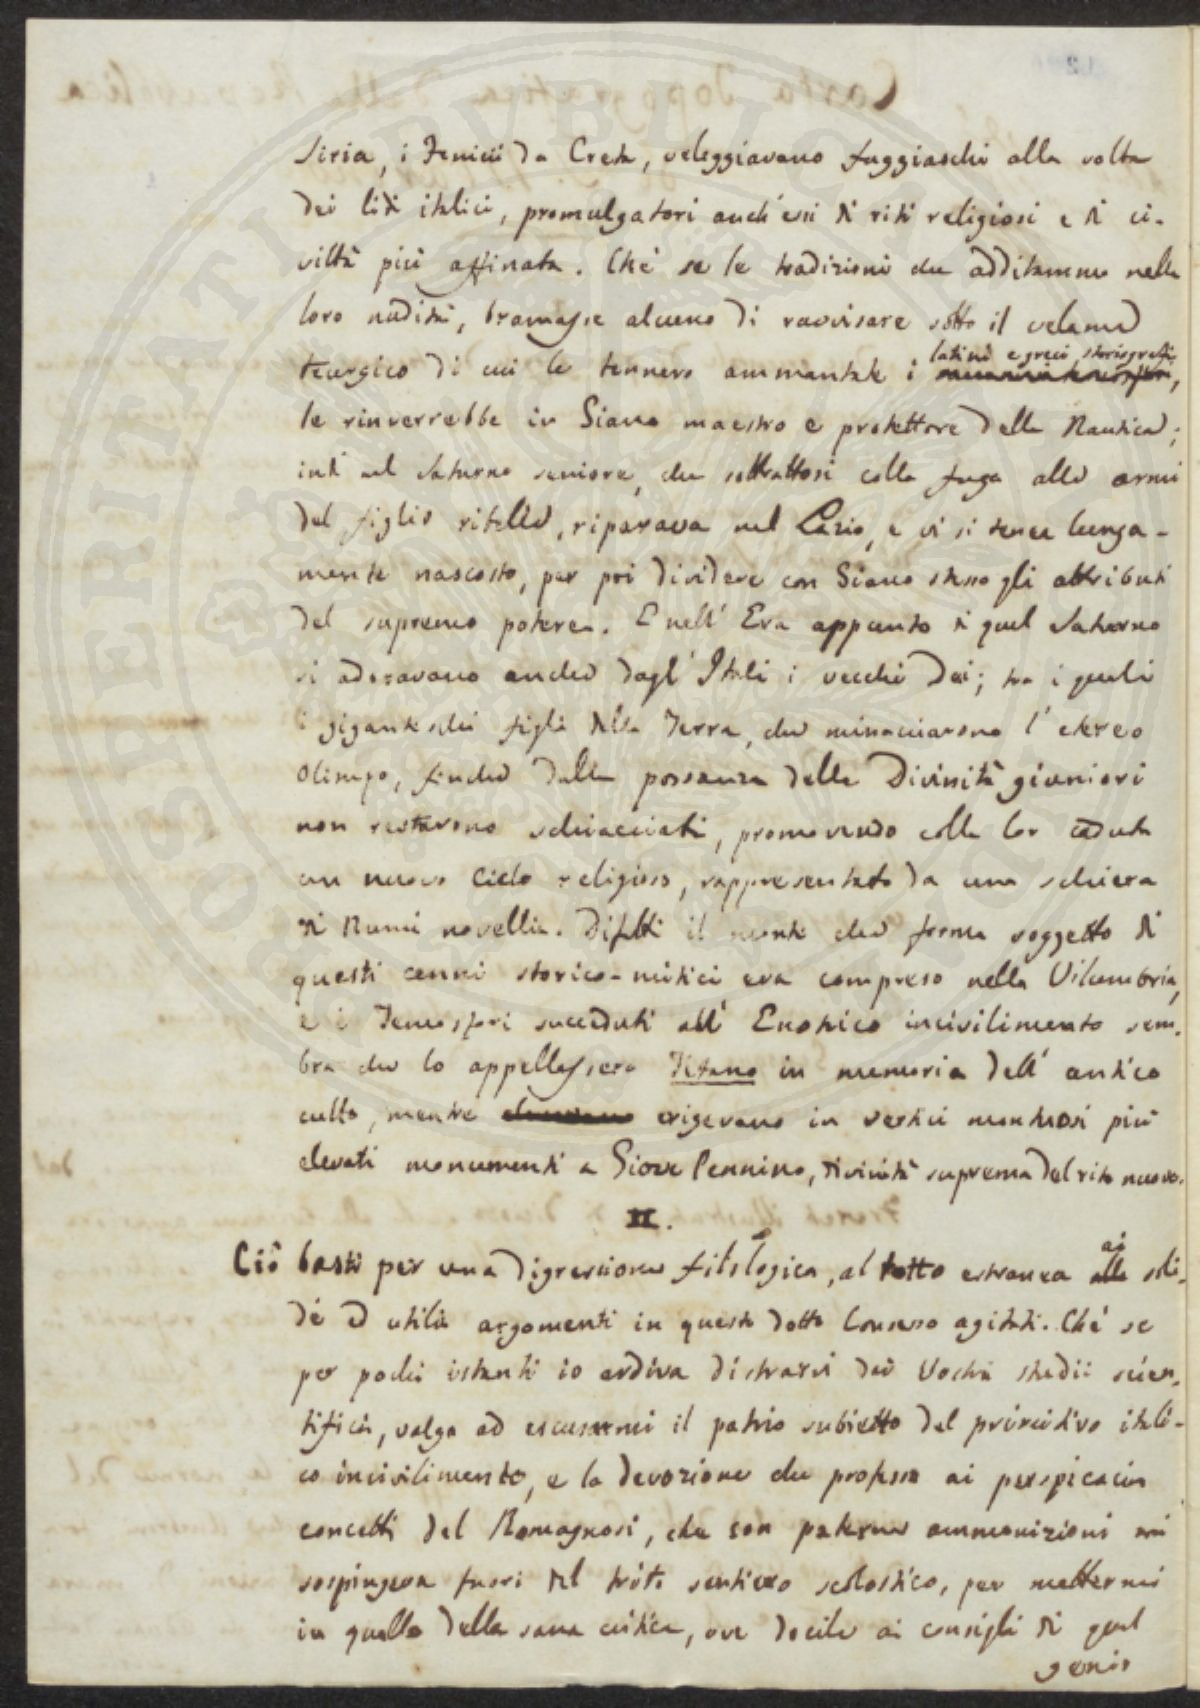 Siria, i Fenicii da Creta, veleggiavano fuggiaschi alla volta
dei lidi italici, promulgatori anch'essi di riti religiosi e di ci-
viltà più affinata. Chè se le tradizioni che additammo nella
loro nudità, bramasse alcuno di ravvisare sotto il velame
teurgico di cui le tennero ammantate i latini e greci storiografi,
le rinverrebbe in Giano maestro e protettore della Nautica;
indi nel Saturno seniore, che sottrattosi colla fuga alle armi
del figlio ribelle, riparava nel Lazio, e vi si tenne lunga-
mente nascosto, per poi dividere con Giano stesso gli attributi
del supremo potere. E nell'Era appunto di quel Saturno
si adoravano anche dagl'Itali i vecchi Dei; tra i quali
i giganteschi figli della Terra, che minacciarono l'etereo
Olimpo, finchè dalla possanza delle Divinità giuniori
non restarono schiacciati, promovendo colla lor caduta
un nuovo Ciclo religioso, rappresentato da una schiera
di Numi novelli. Difatti il monte che forma soggetto di
questi cenni storico-mitici era compreso nella Vilumbria,
e i succeduti all'Enotrico incivilimento sem-
bra che lo appellassero Titano in memoria dell'antico
culto, mentre erigevano in vertici montuosi più
elevati monumenti a Giove Pennino, divinità suprema del rito nuovo.
II.
Ciò basti per una digressione filologica, al tutto estranea ai soli-
di ed utili argomenti in questo dotto Consesso agitati. Chè se
per pochi istanti io ardiva distrarvi dei Vostri studii scien-
tifici, valga ad escusarmi il patrio subietto del primitivo itali-
co incivilimento, e la devozione che professo ai perspicaci
concetti del Romagnosi, che con paterne ammonizioni mi
sospingeva fuori del trito sentiero scolastico, per mettermi
in quello della sana critica, ove docile ai consigli di quel
genio